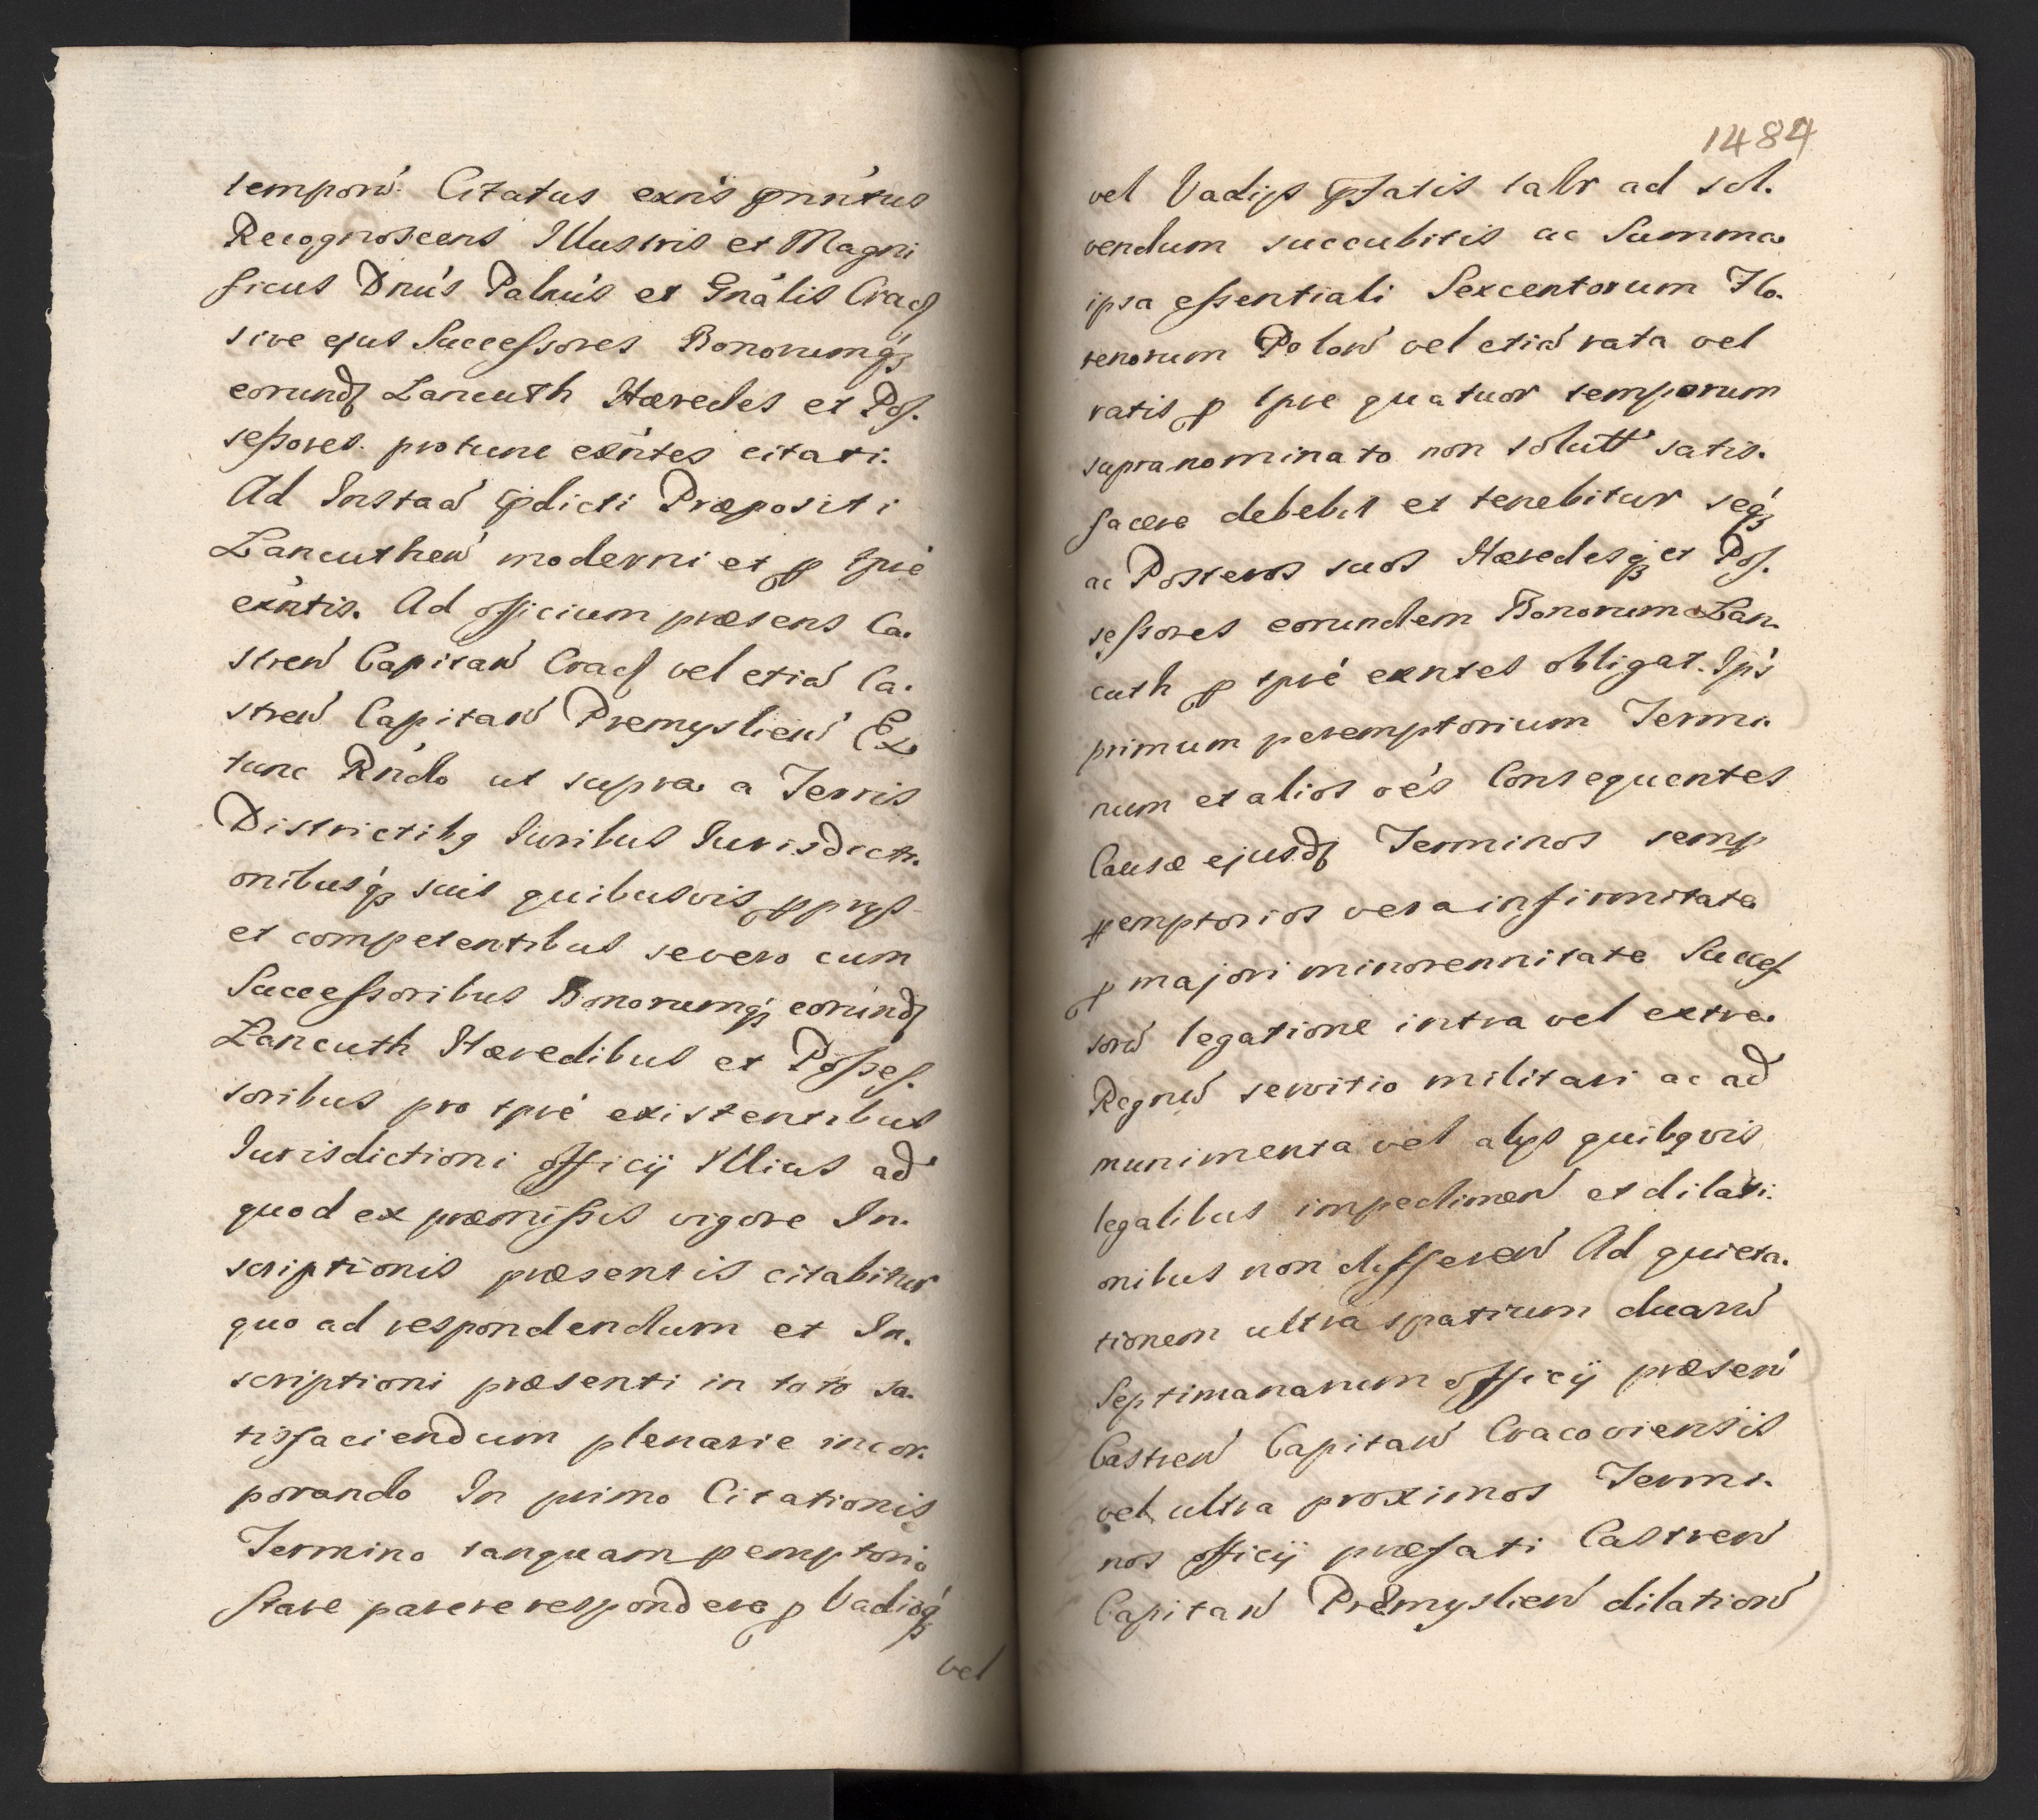 temporū: Citatus exñs prñtus
Recognoscens Illustris et Magni
ficus Dñus Palñus et Gnãlis Crac
sive ejus Successores Bonorumq́ꝫ
eorund Lancuth Hæredes et Pos.
sessores protunc exñtes citati.
Ad Instaã pdicti Præpositi
Lancutheñ moderni et ꝓ tpre
exñtis. Ad officium præsens Ca.
streñ Capitañ Crac vel etiã Ca.
streñ Capitañ Premysleñ Ex
tunc Rñdo ut supra a Terris
Districtibꝫ Iuribus Iurisdicti.
onibusq́ꝫ suis quibusvis ꝓprys
et competentibus severo cum
Successoribus Bonorumq́ꝫ eorund
Lancuth Hæredibus et Posses.
soribus pro tpre existentibus
Jurisdictioni officij Illius ad
quod ex præmissis vigore In.
scriptionis præsentis citabitur
quo ad respondendum et In.
scriptioni præsenti in toto sa.
tisfaciendum plenarie incor.
porando In primo Citationis
Termino tanquam ꝑemptorio
stare parere respondere ꝑ Vadiaq́ꝫ
vel
1484
vel Vadijs pfatis talr ad sol.
vendum succubitis ac Summa
ipsa essentiali Sexcentorum Flo.
renorum Poloñ vel etiã rata vel
ratis ꝓ tpre quatuor temporum
supranominato non solutt satis.
facere debebit et tenebitur seq́ꝫ
ac Posteros suos Hæredesq́ꝫ et Pos.
sessores eorundem Bonorum Lan.
cuth ꝓ tpre exntes obligat. Ips
primum peremptorium Termi.
num et alios oẽs Consequentes
Causæ ejusd Terminos semp
ꝑemptorios vera infirmitate
ꝓ majori minorennitate Succes
sorũ legatione intra vel extra
Regnũ servitio militari ac ad
munimenta vel alys quibꝫvis
legalibus impedimeñ et dilati.
onibus non differeñ Ad quieta.
tionem ultra spatium duarũ
Septimanarum officij præseñ
Castreñ Capitañ Cracoviensis
vel ultra proximos Termi.
nos officij præfati Castreñ
Capitañ Premyslieñ dilationẽ